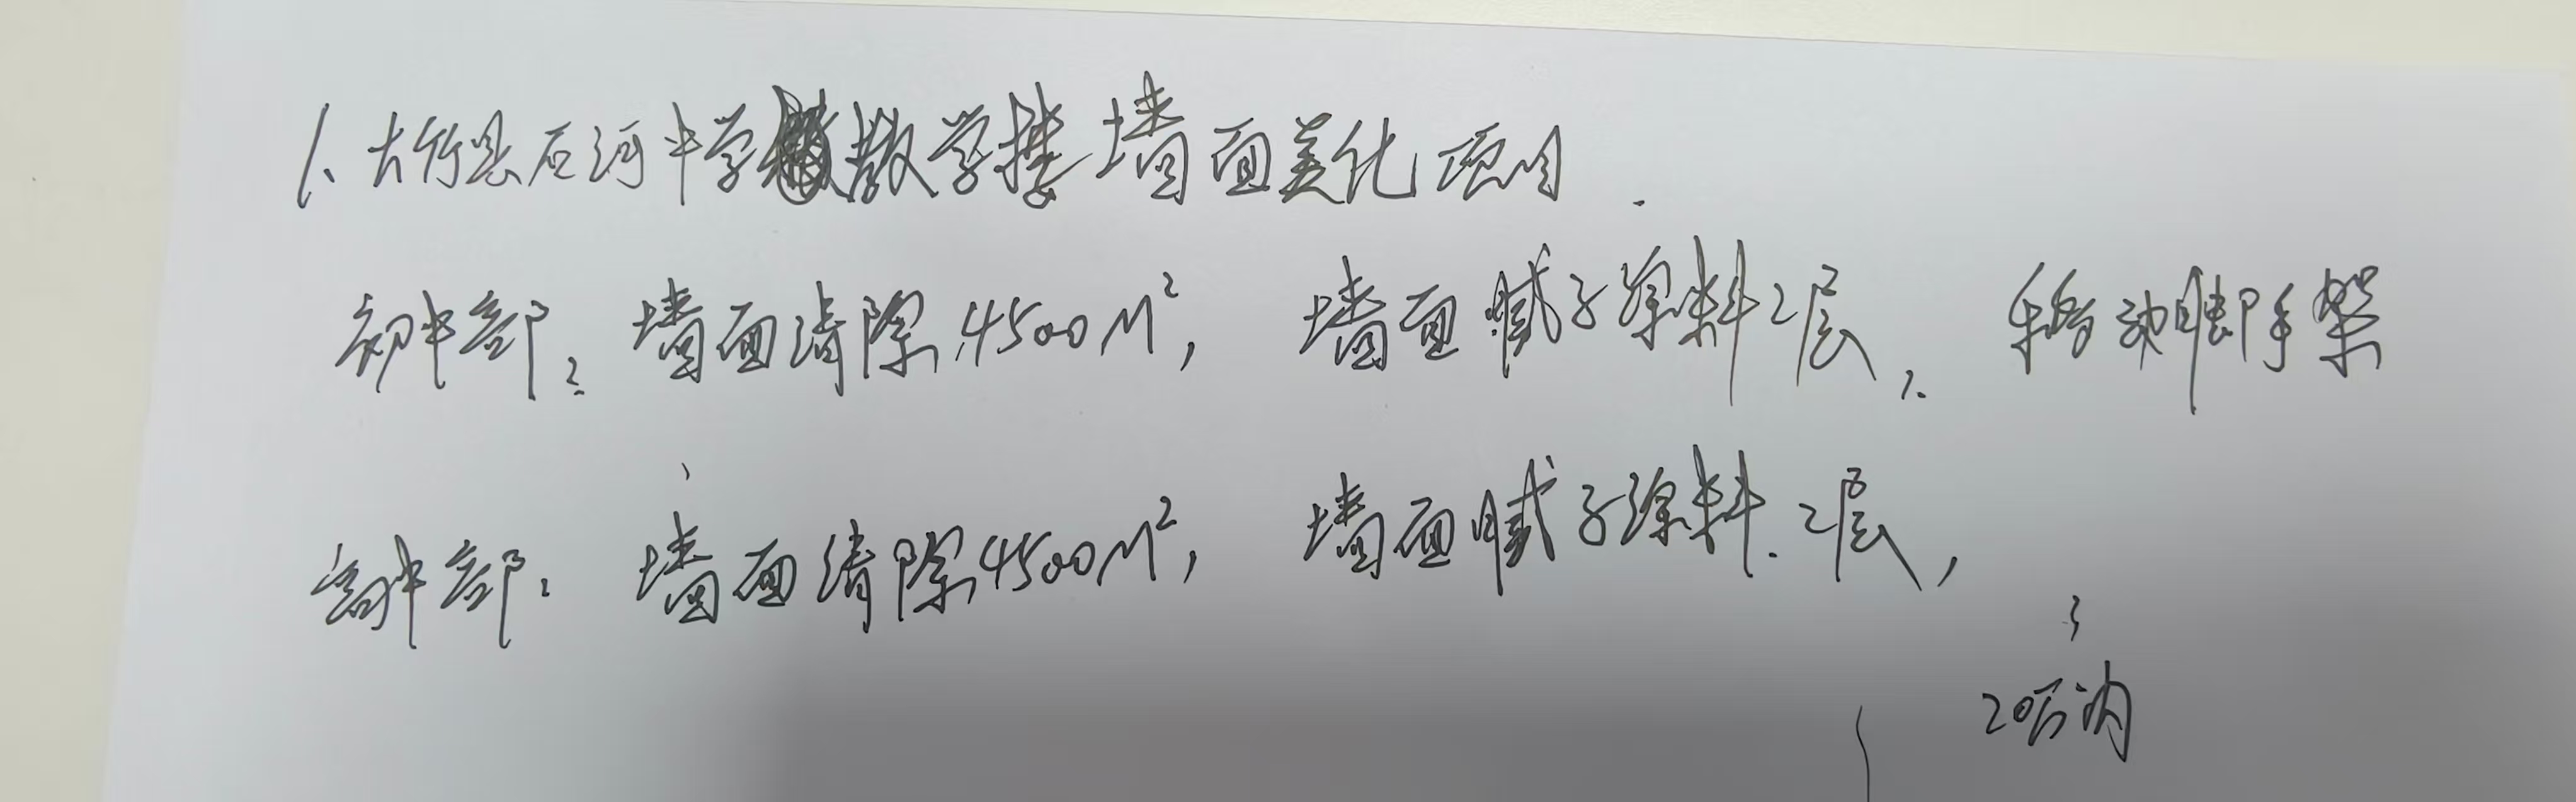 1、大竹县石河中学教学楼墙面美化项目.
初中部: 墙面清除4500M², 墙面腻子涂料2层、 移动脚手架
高中部: 墙面清除4500M², 墙面腻子涂料.2层,
20万内